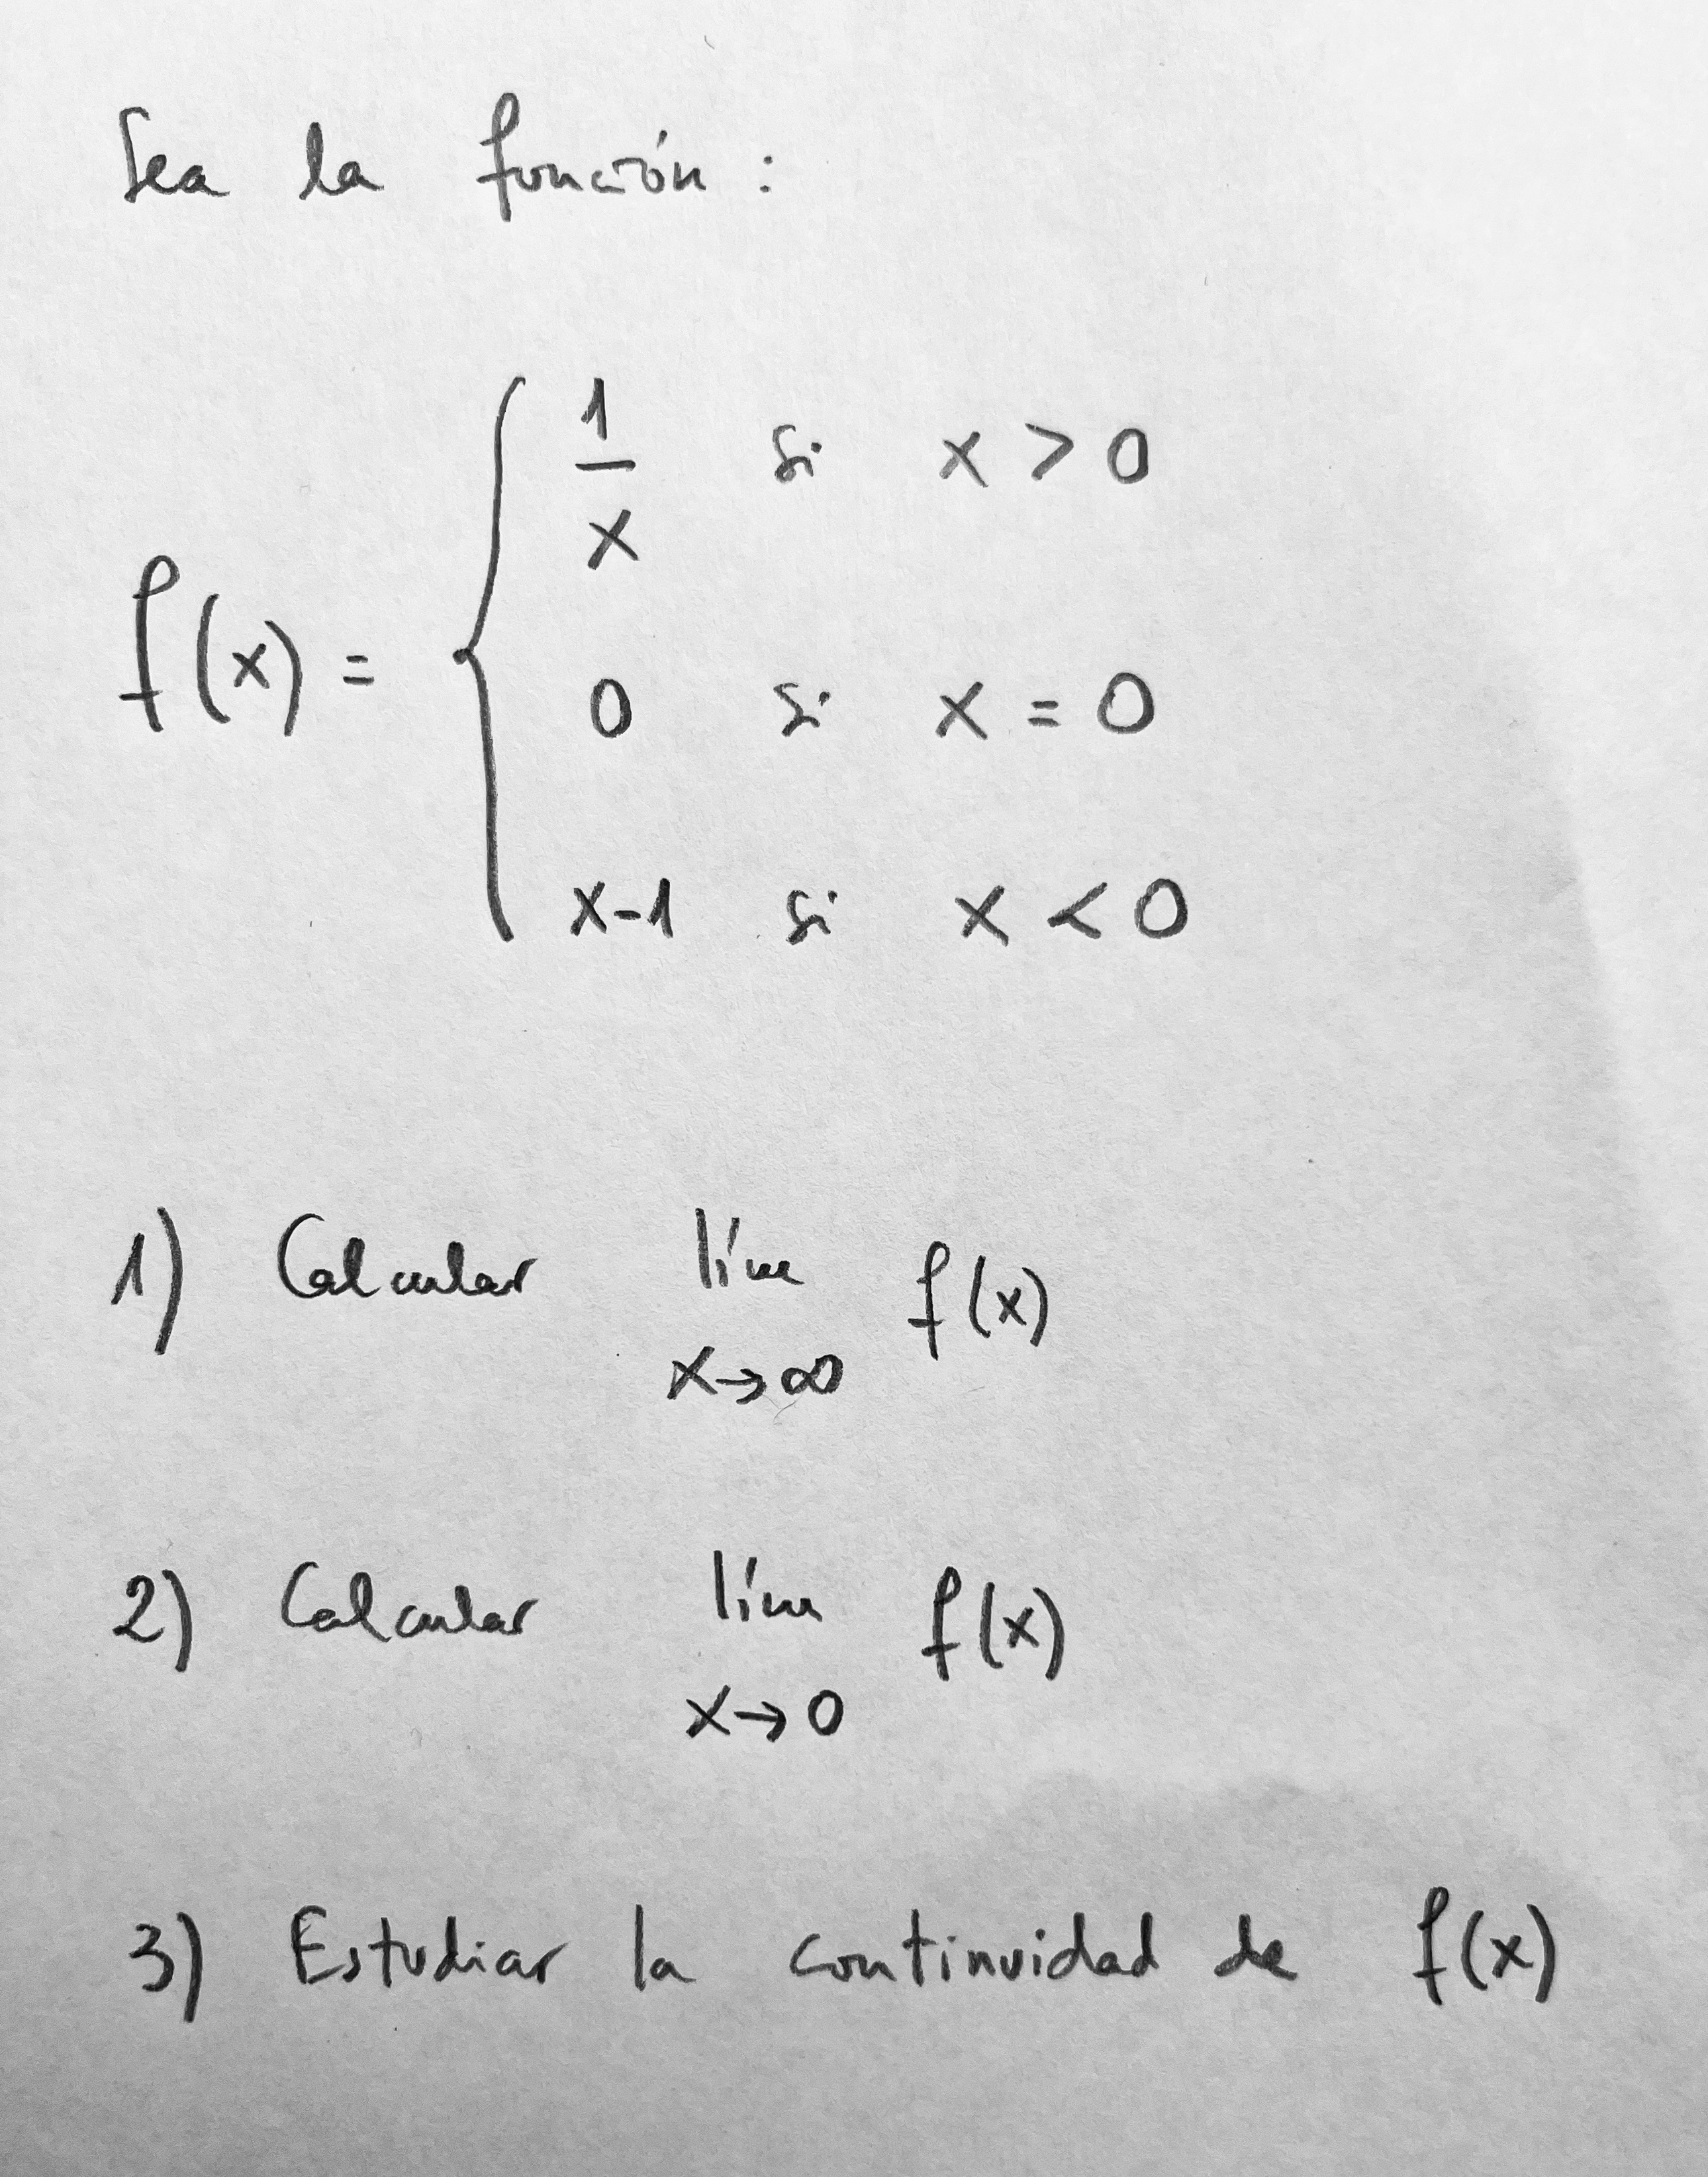 Sea la función:
1/x si x > 0
f(x) = { 0 si x = 0
x-1 si x < 0
1) Calcular lím f(x)
x→∞
2) Calcular lím f(x)
x→0
3) Estudiar la continuidad de f(x)